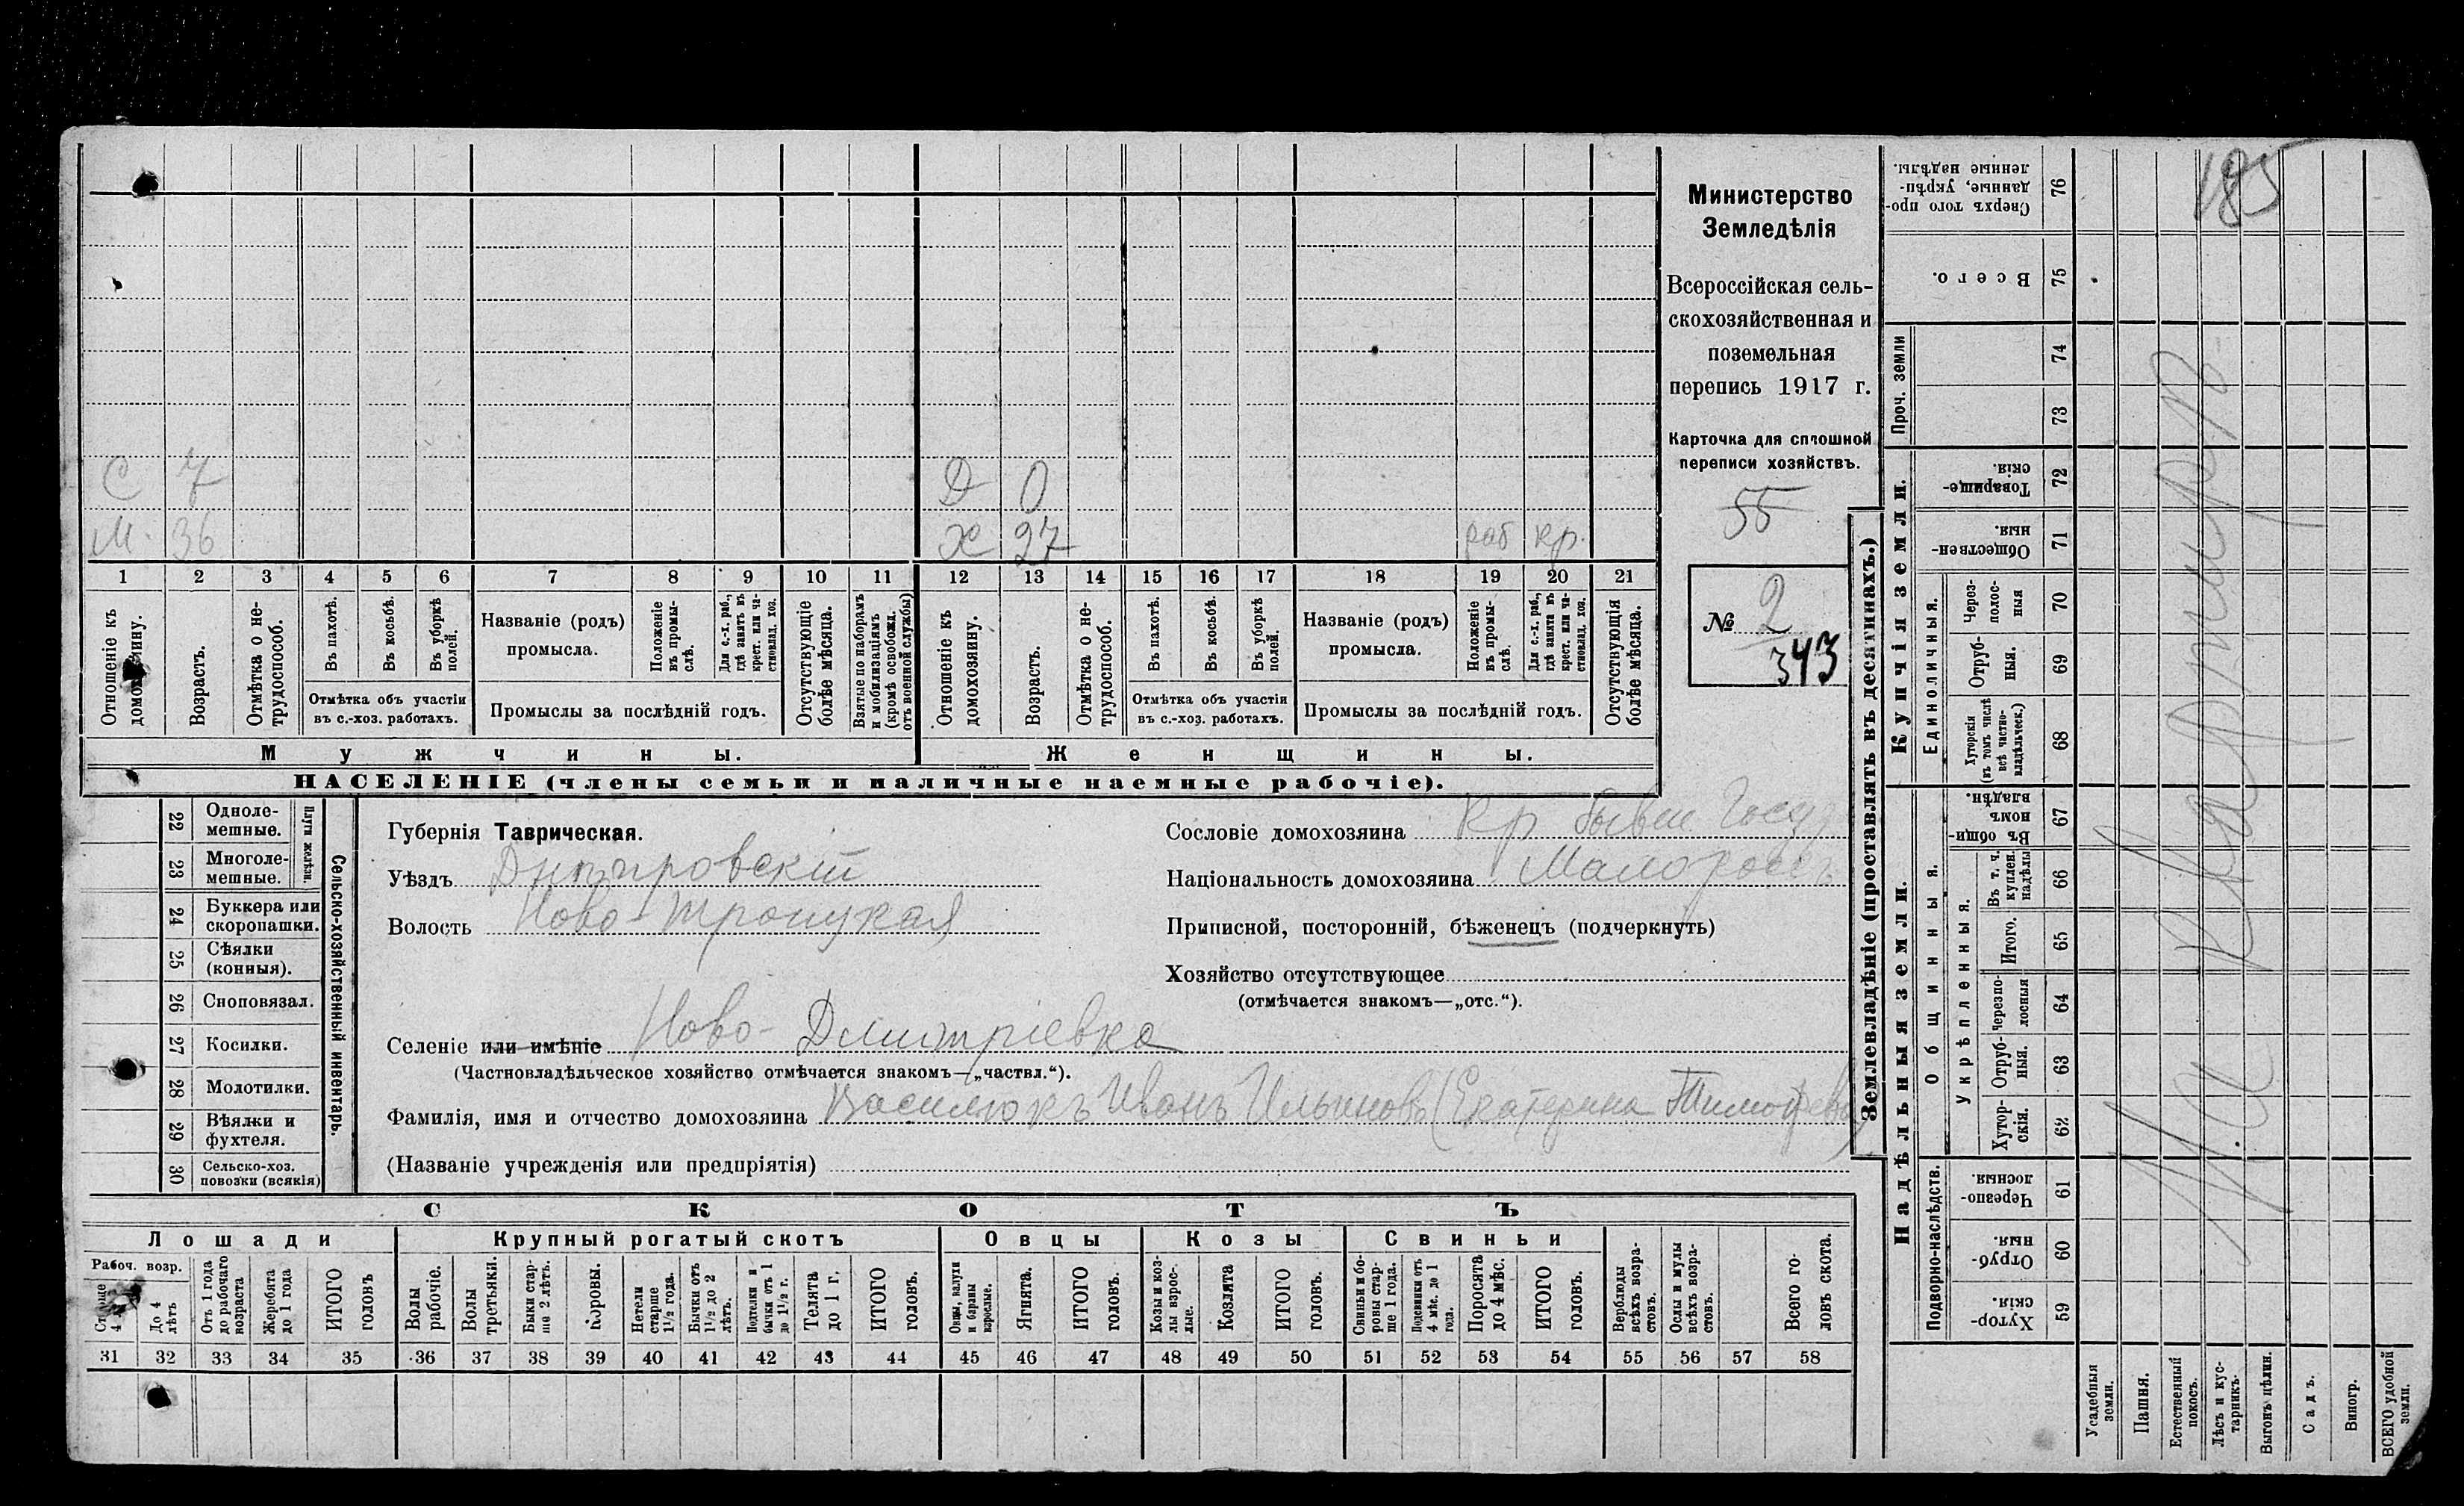 185
С 7 Д 0
М. 36 Х 27 раб кр.
1 2 3 4 5 6 7 8 9 10 11 12 13 14 15 16 17 18 19 20 21
Отношеніе къ домохозяину.
Возрастъ.
Отмѣтка о не-трудоспособ.
Въ пахотѣ.
Въ косьбѣ.
Въ уборкѣ полей.
Отмѣтка объ участіи въ с.-хоз. работахъ.
Названіе (родъ) промысла.
Положеніе въ промы-слѣ.
Для с.-х. раб., гдѣ занятъ въ крест. или ча-стновлад. хоз.
Промыслы за послѣдній годъ.
Отсутствующіе болѣе мѣсяца.
Взятые по наборамъ и мобилизаціямъ (кромѣ освобожд. отъ военной службы)
Отношеніе къ домохозяину.
Возрастъ.
Отмѣтка о не-трудоспособ.
Въ пахотѣ.
Въ косьбѣ.
Въ уборкѣ полей.
Отмѣтка объ участіи въ с.-хоз. работахъ.
Названіе (родъ) промысла.
Положеніе въ промы-слѣ.
Для с.-х. раб., гдѣ занята въ крест. или ча-стновлад. хоз.
Промыслы за послѣдній годъ.
Отсутствующія болѣе мѣсяца.
Мужчины.
Женщины.
НАСЕЛЕНІЕ (члены семьи и наличные наемные рабочіе).
Министерство
Земледѣлія
Всероссійская сель-
скохозяйственная и
поземельная
перепись 1917 г.
Карточка для сплошной
переписи хозяйствъ.
55
№ 2
343
22 Одноле-мешные.
23 Многоле-мешные.
Плуги желѣзн.
24 Буккера или скоропашки.
25 Сѣялки (конныя).
26 Сноповязал.
27 Косилки.
28 Молотилки.
29 Вѣялки и фухтеля.
30 Сельско-хоз. повозки (всякія)
Сельско-хозяйственный инвентарь.
Губернія Таврическая.
Уѣздъ Днѣпровскій
Волость Ново-Троицкая
Сословіе домохозяина Кр бывш Госуд
Національность домохозяина Малороссъ
Приписной, посторонній, бѣженецъ (подчеркнуть)
Хозяйство отсутствующее
(отмѣчается знакомъ—„отс.“).
Селеніе или имѣніе Ново-Дмитріевка
(Частновладѣльческое хозяйство отмѣчается знакомъ—„частвл.“).
Фамилія, имя и отчество домохозяина Василюкъ Иванъ Ильиновъ (Екатерина Тимофеева)
(Названіе учрежденія или предпріятія)
СКОТЪ
Лошади
Крупный рогатый скотъ
Овцы
Козы
Свиньи
Рабоч. возр.
Старше 4 лѣтъ
До 4 лѣтъ
Отъ 1 года до рабочаго возраста
Жеребята до 1 года
ИТОГО головъ
Волы рабочіе.
Волы третьяки.
Быки стар-ше 2 лѣтъ.
Коровы.
Нетели старше 1½ года.
Бычки отъ 1½ до 2 лѣтъ.
Подтелки и бычки отъ 1 до 1½ г.
Телята до 1 г.
ИТОГО головъ.
Овцы, валухи и бараны взрослые.
Ягнята.
ИТОГО головъ.
Козы и коз-лы взрос-лые.
Козлята
ИТОГО головъ.
Свиньи и бо-ровы стар-ше 1 года.
Подсвинки отъ 4 мѣс. до 1 года.
Поросята до 4 мѣс.
ИТОГО головъ.
Верблюды всѣхъ возра-стовъ.
Ослы и мулы всѣхъ возра-стовъ.
Всего го-ловъ скота.
31 32 33 34 35 36 37 38 39 40 41 42 43 44 45 46 47 48 49 50 51 52 53 54 55 56 57 58
Землевладѣніе (проставлять въ десятинахъ.)
Надѣльныя земли.
Купчія земли.
Проч. земли
Подворно-наслѣдств.
Общинныя.
Укрѣпленныя.
Единоличныя.
Сверхъ того про-данные, укрѣп-ленные надѣлы. 76
Всего. 75
74
73
Товарище-скія. 72
Обществен-ныя. 71
Через-полос-ныя 70
Отруб-ныя. 69
Хуторскія (въ томъ числѣ всѣ частно-владѣльческ.) 68
Въ общи-номъ владѣн. 67
Въ т. ч. куплен. надѣлы 66
Итого. 65
Черезпо-лосныя 64
Отруб-ныя. 63
Хутор-скія. 62
Черезпо-лосныя. 61
Отруб-ныя. 60
Хутор-скія. 59
Усадебныя земли.
Пашня.
Естественный покосъ.
Лѣсъ и кус-тарникъ.
Выгонъ цѣлин.
Садъ.
Виногр.
ВСЕГО удобной земли.
На квартирѣ